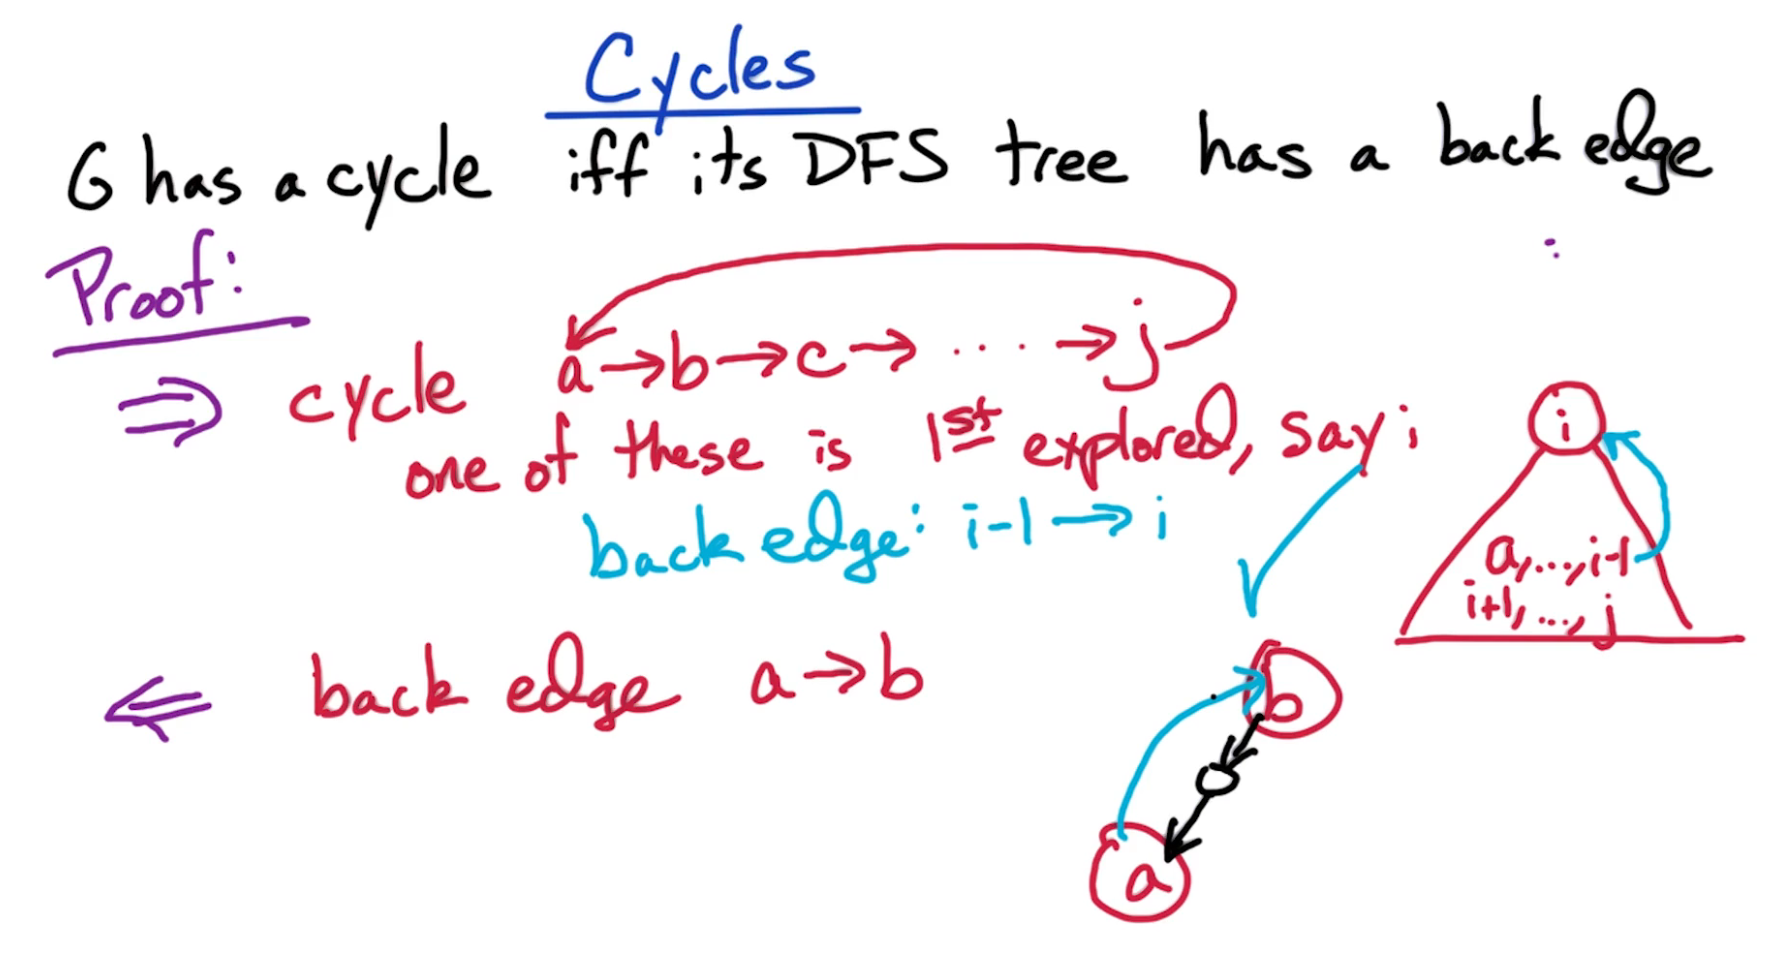 Cycles
G has a cycle iff its DFS tree has a back edge
Proof:
⇒ cycle a → b → c → .... → j
one of these is 1st explored, say i
back edge: i-1 → i
i
a, ..., i-1
i+1, ..., j
⇐ back edge a → b
b
a